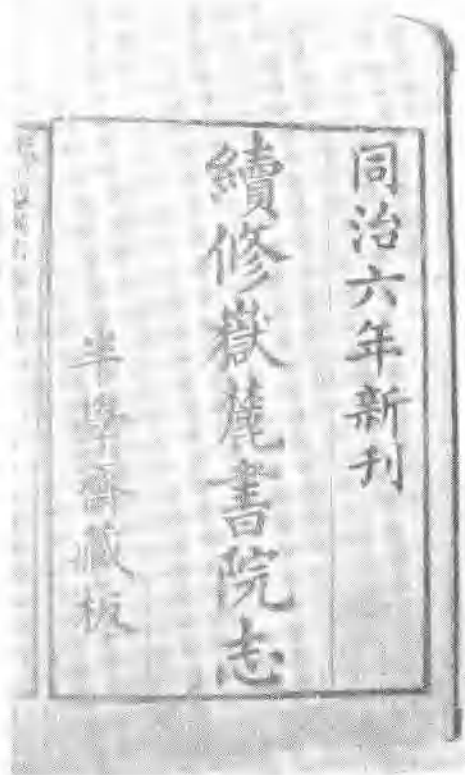 同治六年新刊
續修嶽麓書院志
半學齋藏板